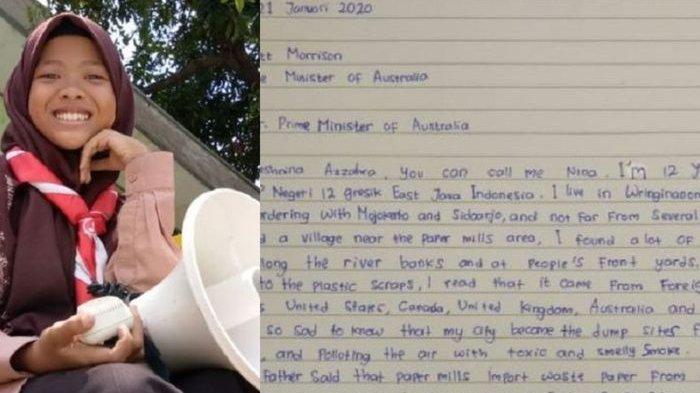 21 Januari 2020
Morrison
Minister of Australia
Prime Minister of Australia
Azzahra, You can call me Nina. I'm 12 y
Negeri 12 gresik East Java Indonesia. I live in Wringinano
rdering with Mojokerto and Sidoarjo, and not far from Several
d a village near the paper mills area, I found a lot of
long the river banks and at people's front yards.
to the plastic scraps, I read that it came from Foreig
s United States, Canada, United Kingdom, Australia and
so sad to know that my city become the dump sites f
, and Polloting the air with toxic and smelly smoke.
Father said that paper mills import waste paper from